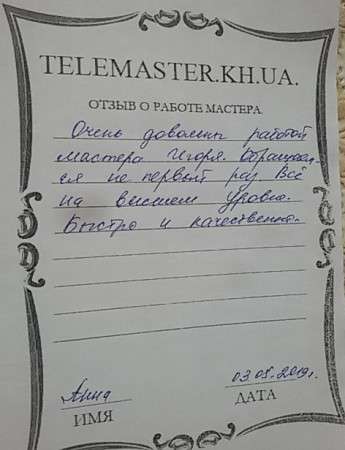 TELEMASTER.KH.UA.
ОТЗЫВ О РАБОТЕ МАСТЕРА.
Очень довольны работой
мастера Игоря. Обращаем-
ся не первый раз. Всё
на высшем уровне.
Быстро и качественно.
Анна 03.05.2019г.
ИМЯ ДАТА